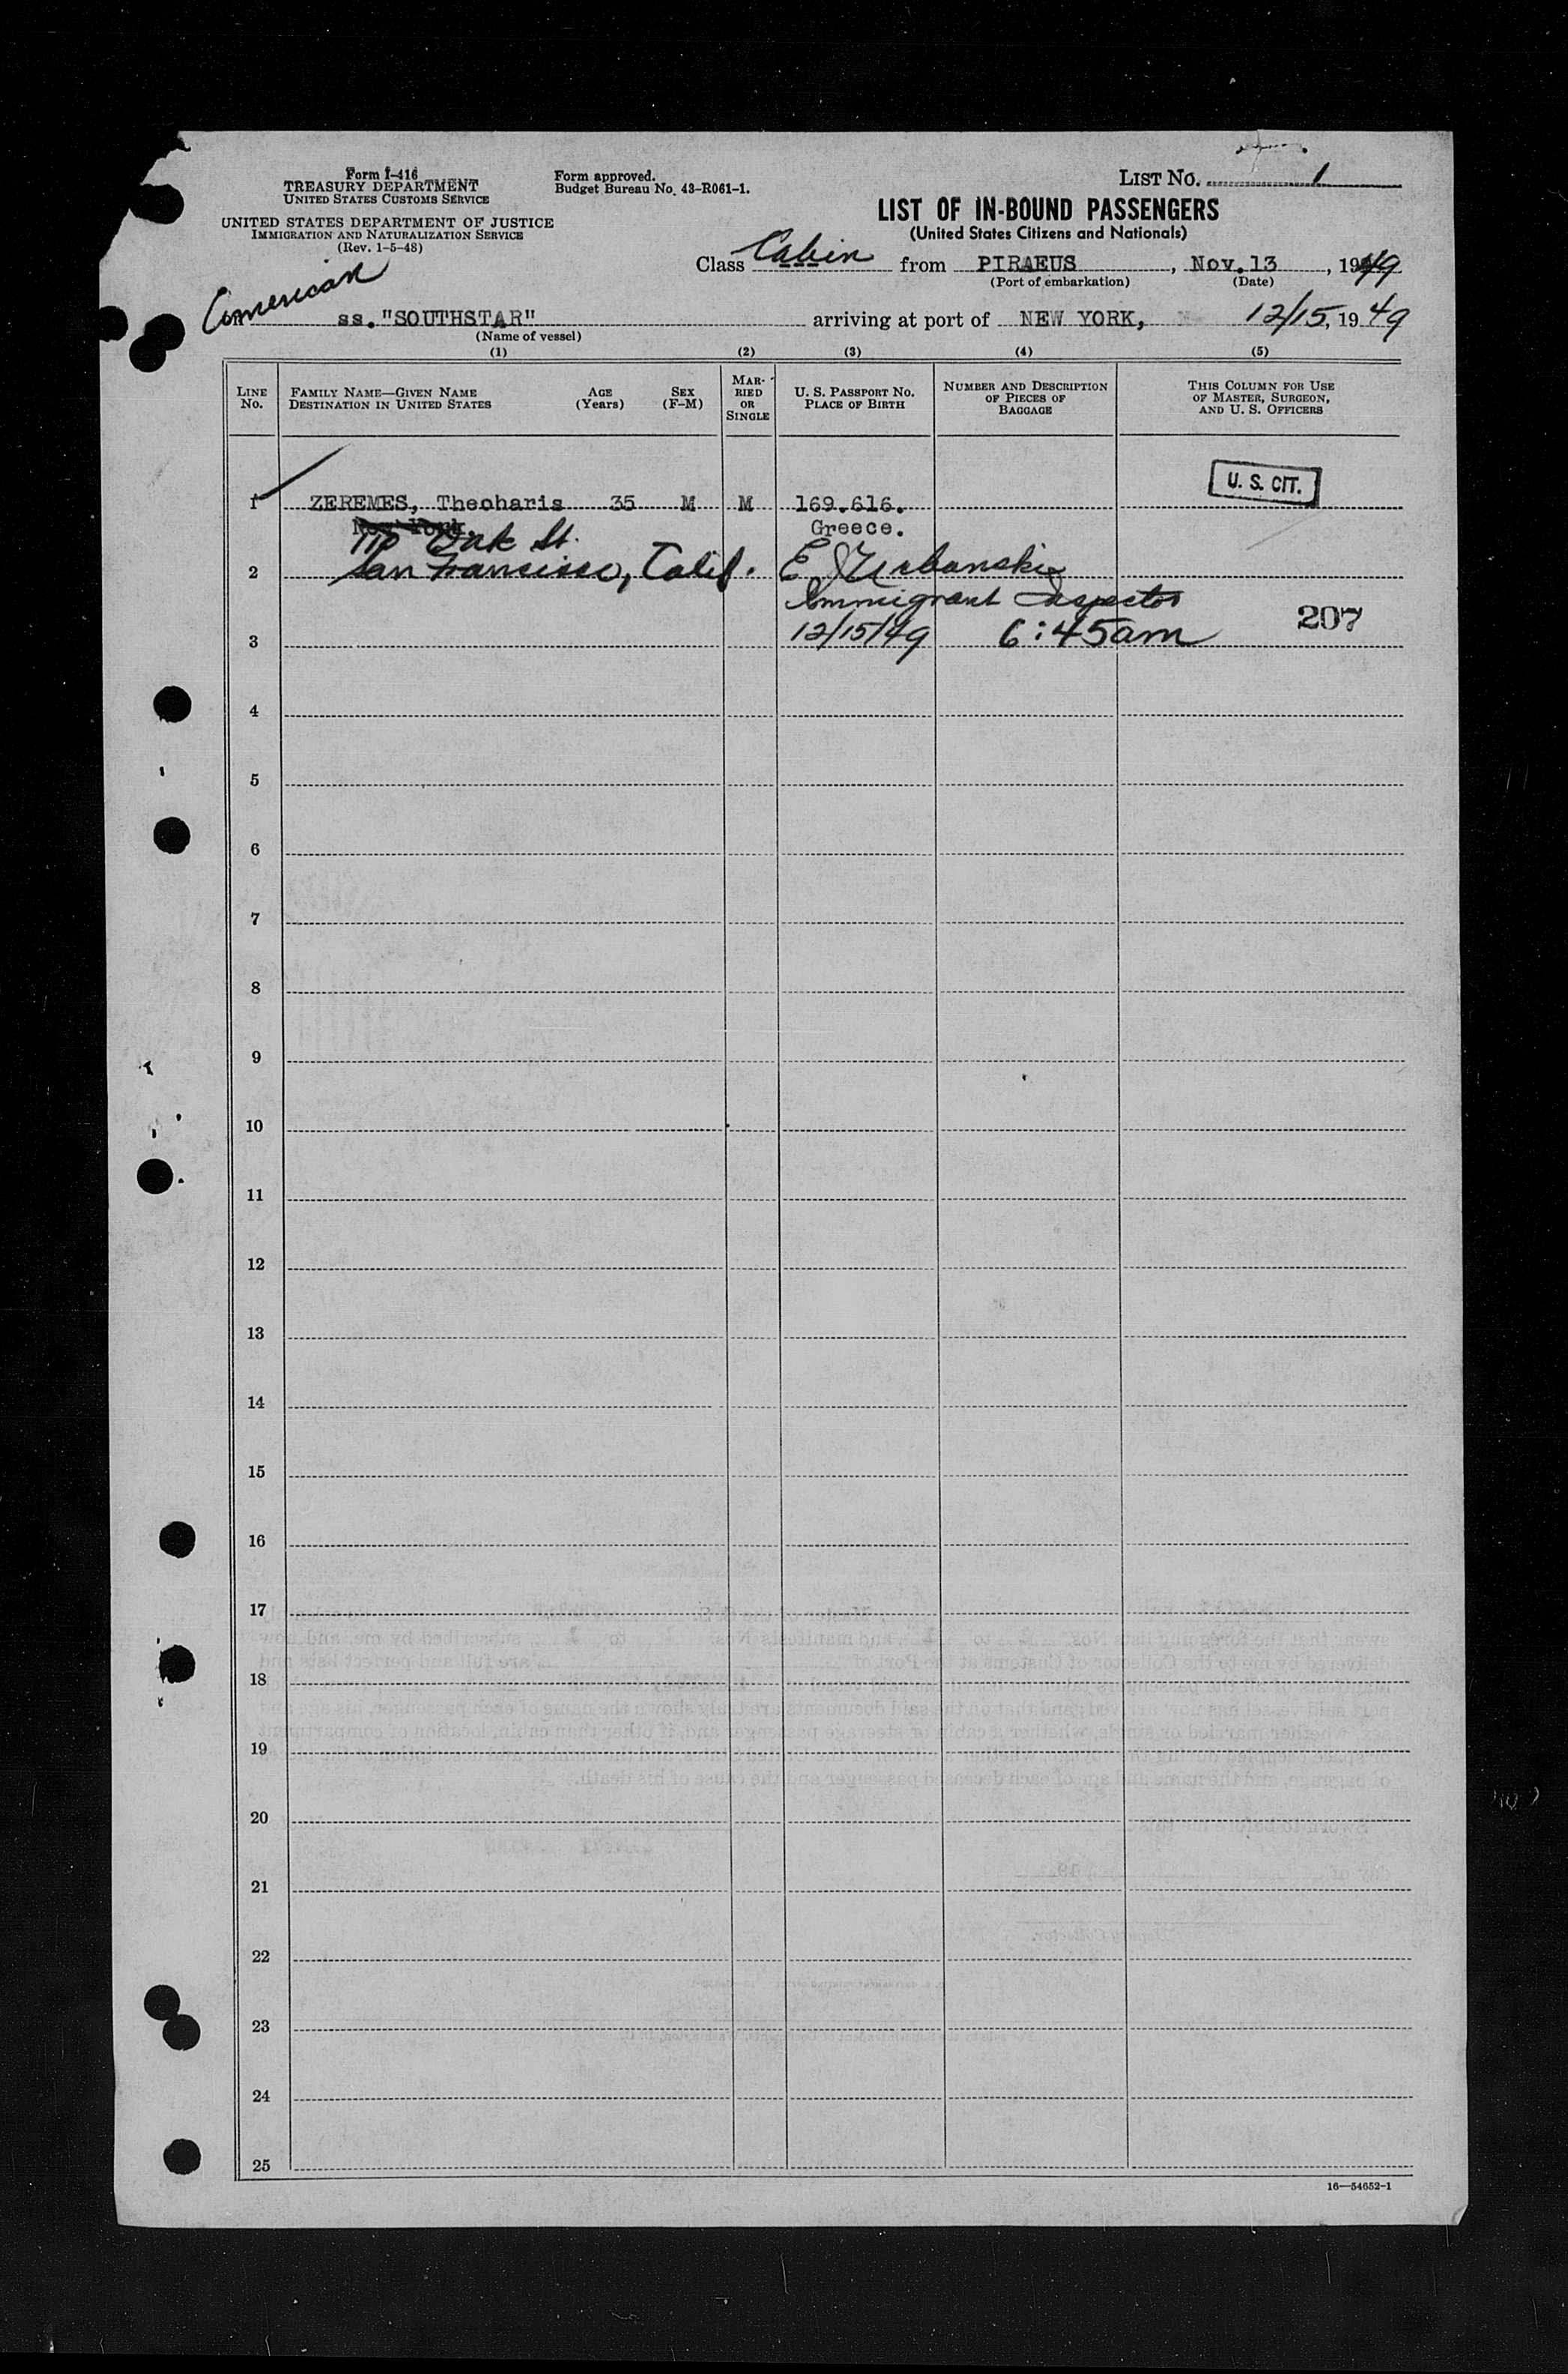 Form I-416
TREASURY DEPARTMENT
UNITED STATES CUSTOMS SERVICE
UNITED STATES DEPARTMENT OF JUSTICE
IMMIGRATION AND NATURALIZATION SERVICE
(Rev. 1-5-48)
Form approved.
Budget Bureau No. 43-R061-1.
LIST NO. 1
LIST OF IN-BOUND PASSENGERS
(United States Citizens and Nationals)
Class Cabin from PIRAEUS, Nov.13, 1949
(Port of embarkation) (Date)
American
ss."SOUTHSTAR" arriving at port of NEW YORK, 12/15, 1949
(Name of vessel)
(1) (2) (3) (4) (5)
LINE No.
FAMILY NAME—GIVEN NAME
DESTINATION IN UNITED STATES
AGE (Years)
SEX (F-M)
MARRIED OR SINGLE
U. S. PASSPORT NO.
PLACE OF BIRTH
NUMBER AND DESCRIPTION
OF PIECES OF
BAGGAGE
THIS COLUMN FOR USE
OF MASTER, SURGEON,
AND U. S. OFFICERS
U. S. CIT.
1 ZEREMES, Theoharis 35 M M 169.616.
New York. Greece.
110 Oak St.
2 San Francisco, Calif. E J Urbanski
Immigrant Inspector
207
3 12/15/49 6:45am
4
5
6
7
8
9
10
11
12
13
14
15
16
17
18
19
20
21
22
23
24
25
16—54652-1